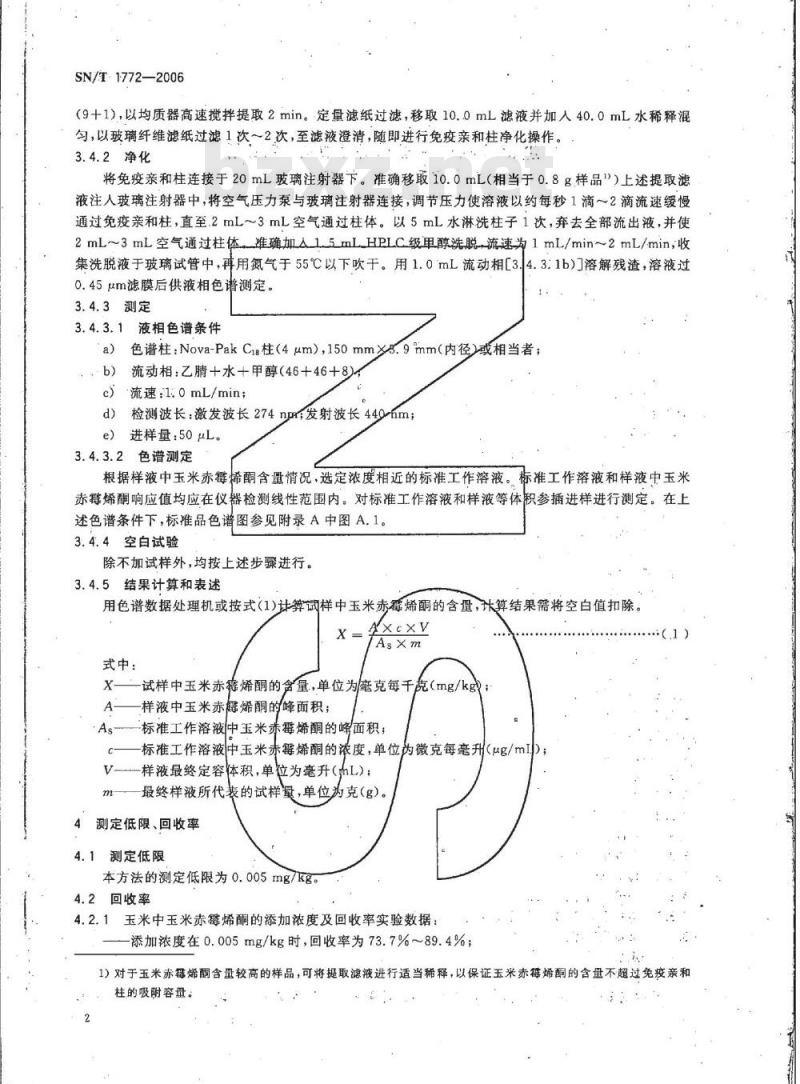 SN/T 1772—2006
(9+1),以均质器高速搅拌提取 2 min。定量滤纸过滤,移取 10.0 mL 滤液并加入 40.0 mL 水稀释混
匀,以玻璃纤维滤纸过滤 1 次～2 次,至滤液澄清,随即进行免疫亲和柱净化操作。
3.4.2 净化
将免疫亲和柱连接于 20 mL 玻璃注射器下。准确移取 10.0 mL(相当于 0.8 g 样品¹⁾)上述提取滤
液注入玻璃注射器中,将空气压力泵与玻璃注射器连接,调节压力使溶液以约每秒 1 滴～2 滴流速缓慢
通过免疫亲和柱,直至 2 mL～3 mL 空气通过柱体。以 5 mL 水淋洗柱子 1 次,弃去全部流出液,并使
2 mL～3 mL 空气通过柱体。准确加入 1.5 mL HPLC 级甲醇洗脱,流速为 1 mL/min～2 mL/min,收
集洗脱液于玻璃试管中,再用氮气于 55℃以下吹干。用 1.0 mL 流动相[3.4.3.1b)]溶解残渣,溶液过
0.45 μm滤膜后供液相色谱测定。
3.4.3 测定
3.4.3.1 液相色谱条件
a) 色谱柱:Nova-Pak C₁₈柱(4 μm),150 mm×3.9 mm(内径)或相当者;
b) 流动相:乙腈+水+甲醇(46+46+8);
c) 流速:1.0 mL/min;
d) 检测波长:激发波长 274 nm;发射波长 440 nm;
e) 进样量:50 μL。
3.4.3.2 色谱测定
根据样液中玉米赤霉烯酮含量情况,选定浓度相近的标准工作溶液。标准工作溶液和样液中玉米
赤霉烯酮响应值均应在仪器检测线性范围内。对标准工作溶液和样液等体积参插进样进行测定。在上
述色谱条件下,标准品色谱图参见附录 A 中图 A.1。
3.4.4 空白试验
除不加试样外,均按上述步骤进行。
3.4.5 结果计算和表述
用色谱数据处理机或按式(1)计算试样中玉米赤霉烯酮的含量,计算结果需将空白值扣除。
X = A×c×V / A_S×m ……………………………(1)
式中:
X——试样中玉米赤霉烯酮的含量,单位为毫克每千克(mg/kg);
A——样液中玉米赤霉烯酮的峰面积;
A_S——标准工作溶液中玉米赤霉烯酮的峰面积;
c——标准工作溶液中玉米赤霉烯酮的浓度,单位为微克每毫升(μg/mL);
V——样液最终定容体积,单位为毫升(mL);
m——最终样液所代表的试样量,单位为克(g)。
4 测定低限、回收率
4.1 测定低限
本方法的测定低限为 0.005 mg/kg。
4.2 回收率
4.2.1 玉米中玉米赤霉烯酮的添加浓度及回收率实验数据:
——添加浓度在 0.005 mg/kg 时,回收率为 73.7%～89.4%;
1) 对于玉米赤霉烯酮含量较高的样品,可将提取滤液进行适当稀释,以保证玉米赤霉烯酮的含量不超过免疫亲和
柱的吸附容量。
2